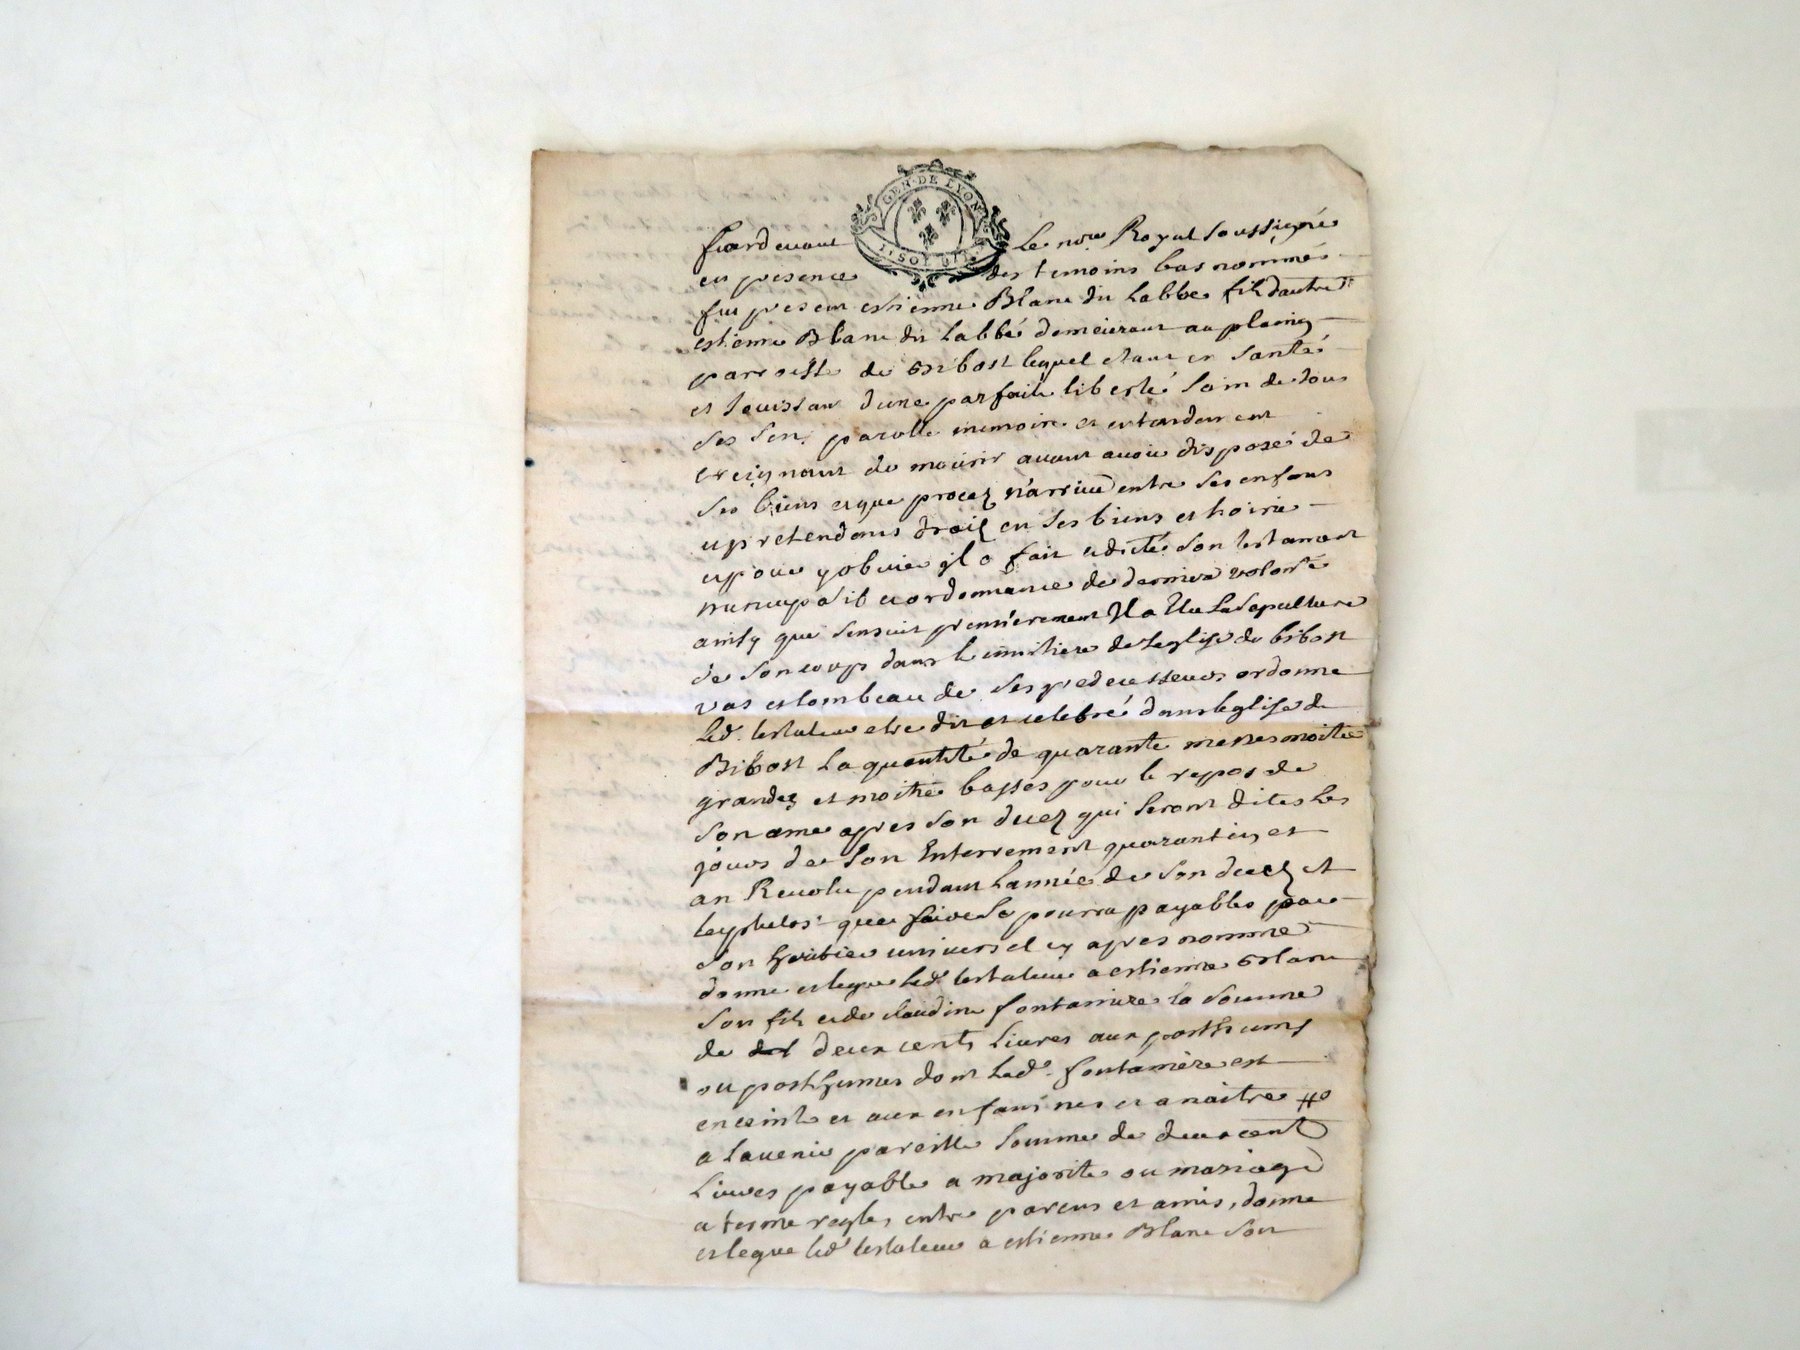 GEN·DE LYON
1·SOL 6 D
Pardevant Le nore Royal soussigné
en presence des temoins bas nommés
fut present estienne Blanc dit Labbe fils dautre
estienne Blanc dit Labbé demeurant au plainy
parroisse de Bibost lequel etant en santé
et Jouissant dune parfaite liberté sain de tous
ses sens parolle memoire et entendement
creignant de mourir avant avoir disposé de
ses biens et que procez n'arrive entre ses enfans
et pretendans droit en ses biens et hoirie
et pour y obvier yl a fait et dicté son testament
nuncupatif et ordonnance de derniere volonté
ainsy que sensuit premierement Il a Elu La sepulture
de son corps dans le cimitiere de leglise de bibost
vas et tombeau de ses predecesseurs ordonne
led. testateur etre dit et celebré dans leglise de
Bibost La quantité de quarante messes moitié
grandes et moitié basses pour le repos de
son ame apres son decez qui seront dites les
jours de son Enterrement quarantin et
an Revolu pendant Lannée de son decez et
le plutost que faire se pourra payables par
son heritier universel cy apres nommé
donne et legue led. testateur a estienne Blanc
son fils et de claudine fontaniere la somme
de deux cents Livres aux posthume
ou posthumes dont Lade. fontaniere est
enceinte et aux enfans nes et a naitre
a Lavenir pareille somme de deux cent
Livres payable a majorité ou mariage
a terme reglés entre parens et amis, donne
et legue led. testateur a estienne Blanc son